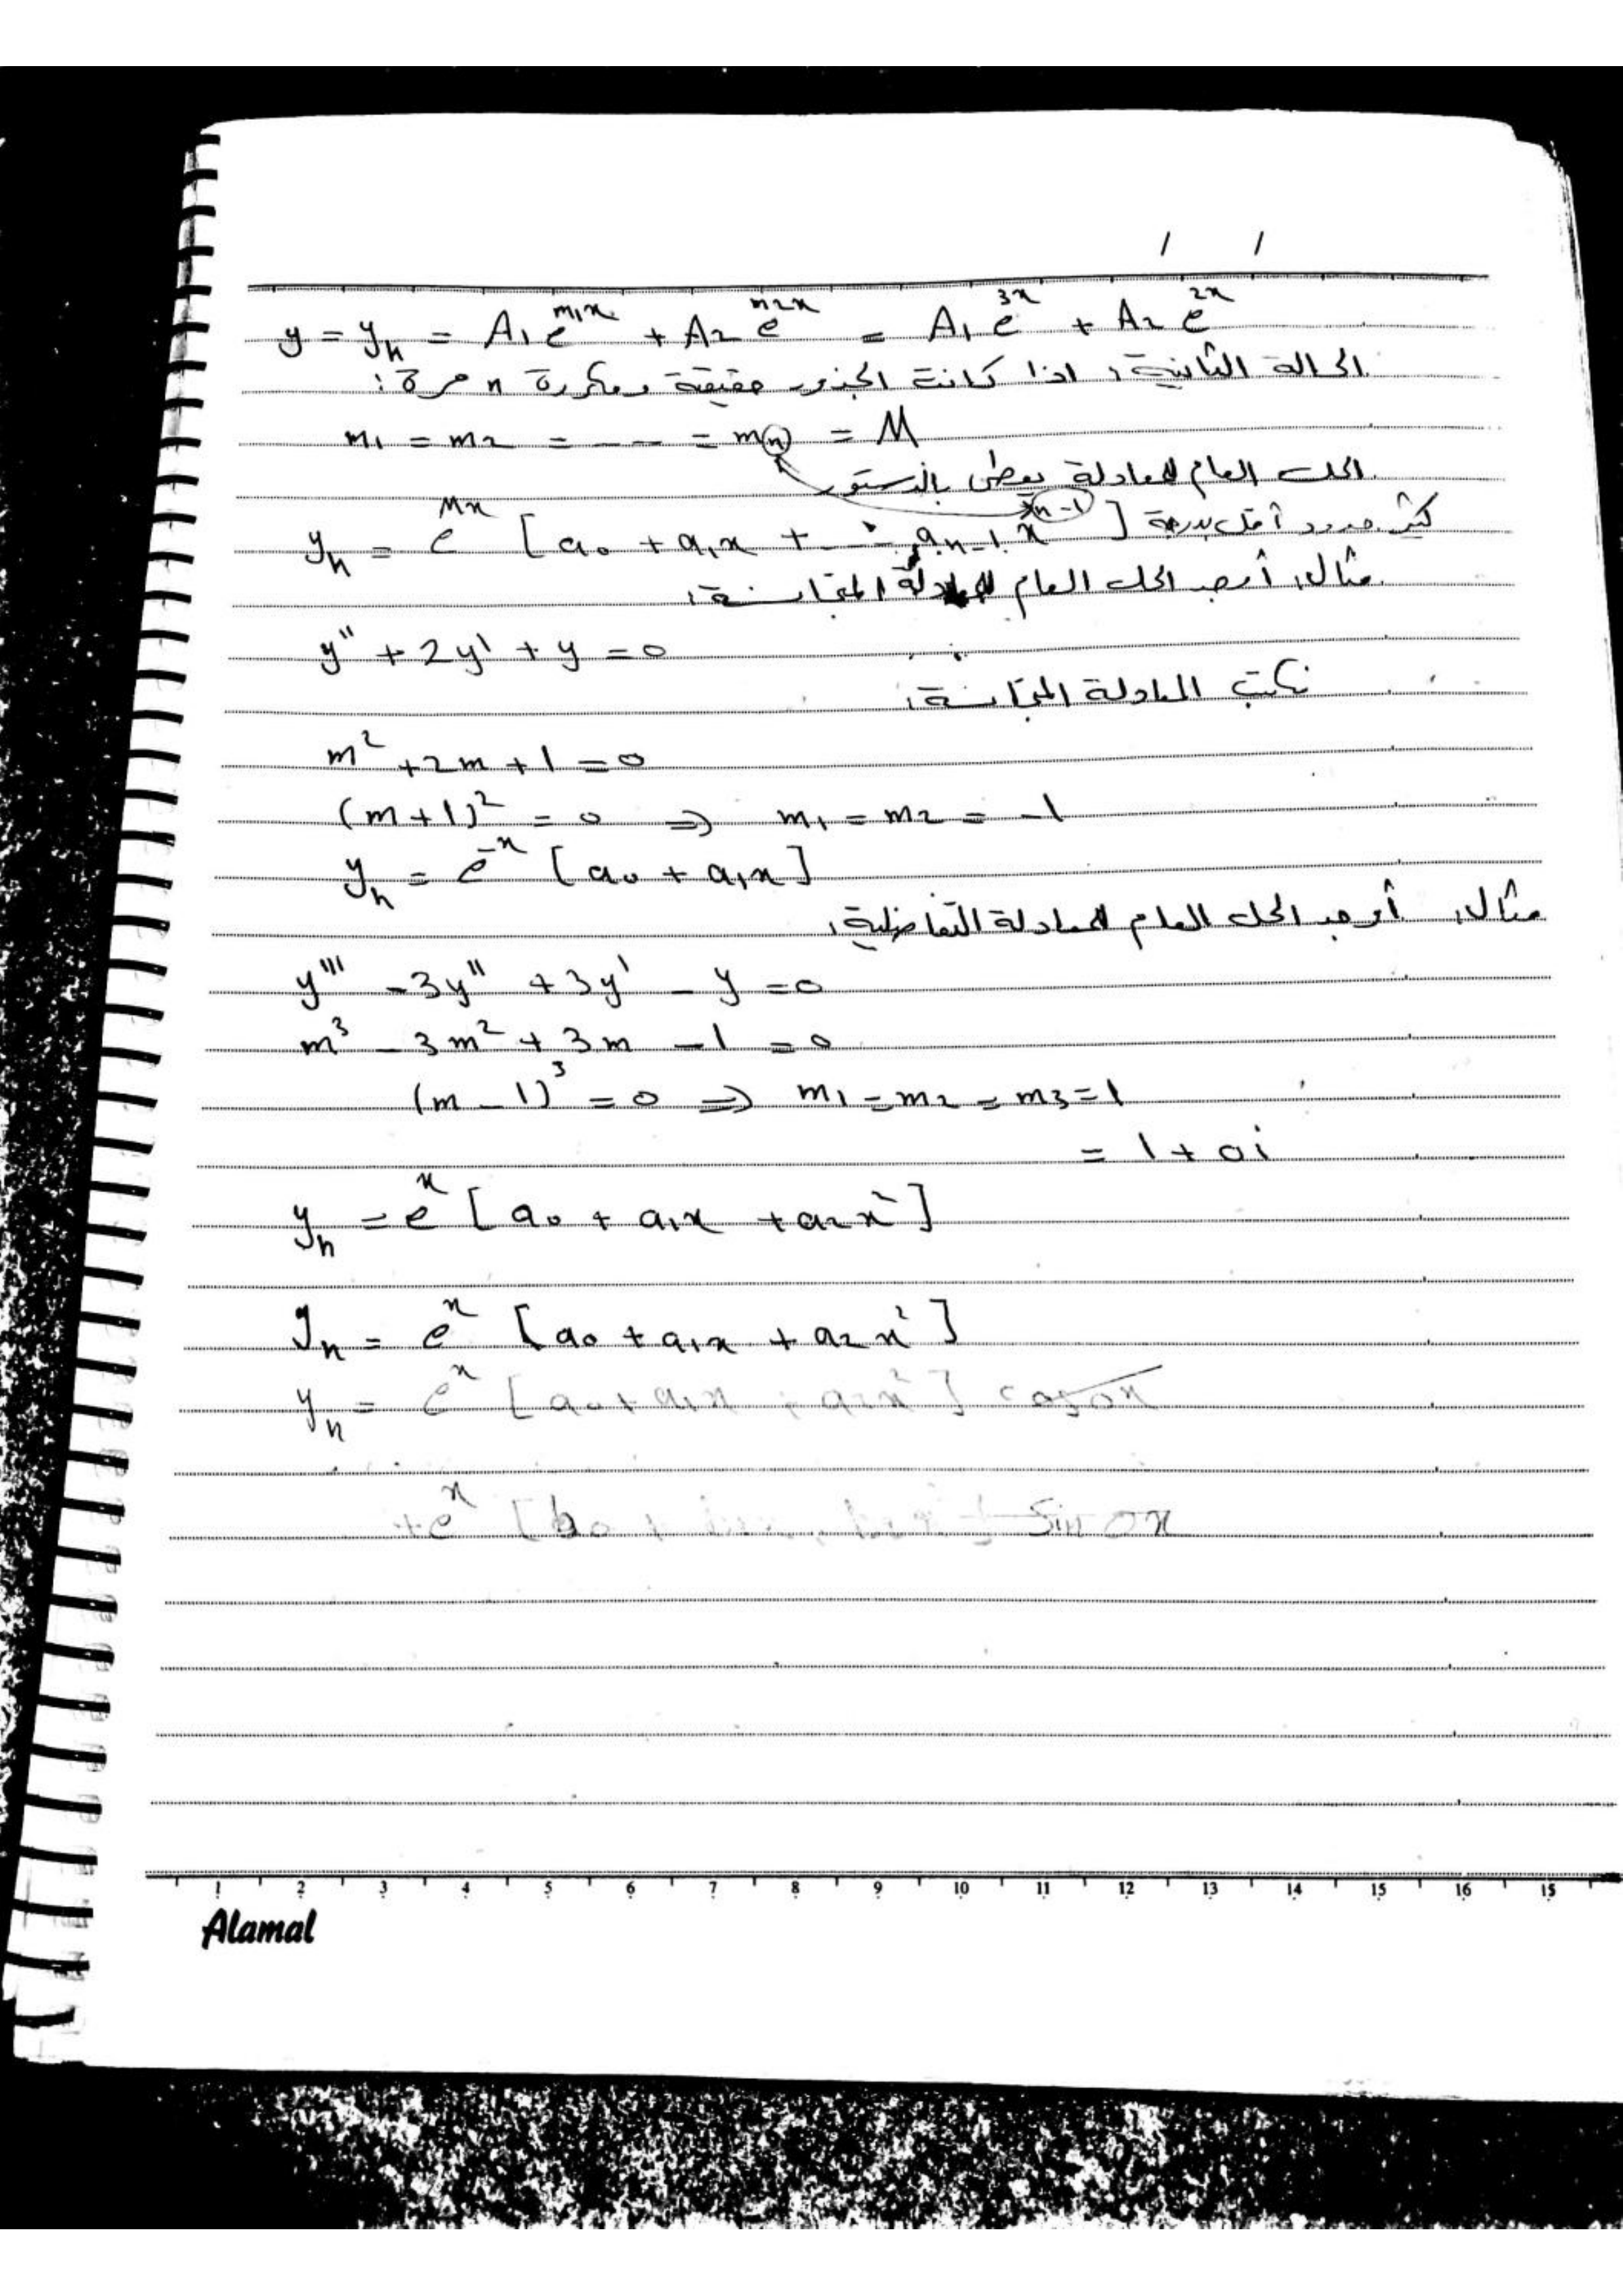 / /
y = y_h = A₁e^{m₁x} + A₂e^{m₂x} = A₁e^{3x} + A₂e^{2x}
الحالة الثانية: اذا كانت الجذور حقيقية ومكررة n مرة:
m₁ = m₂ = --- = m_n = M
الحل العام للمعادلة يعطى بالدستور
y_h = e^{Mx} [a₀ + a₁x + --- a_{n-1} x^{n-1}] كثير حدود أقل بدرجة
مثال: أوجد الحل العام للمعادلة المتجانسة:
y'' + 2y' + y = 0
نكتب المعادلة المتجانسة:
m² + 2m + 1 = 0
(m + 1)² = 0 ⇒ m₁ = m₂ = -1
y_h = e^{-x} [a₀ + a₁x]
مثال: أوجد الحل العام للمعادلة التفاضلية:
y''' - 3y'' + 3y' - y = 0
m³ - 3m² + 3m - 1 = 0
(m - 1)³ = 0 ⇒ m₁ = m₂ = m₃ = 1
= 1 + 0i
y_h = e^x [a₀ + a₁x + a₂x²]
y_h = e^x [a₀ + a₁x + a₂x²]
y_h = e^x [a₀ + a₁x + a₂x²] cos 0x
+ e^x [b₀ + sin 0x
1 2 3 4 5 6 7 8 9 10 11 12 13 14 15 16 15
Alamal